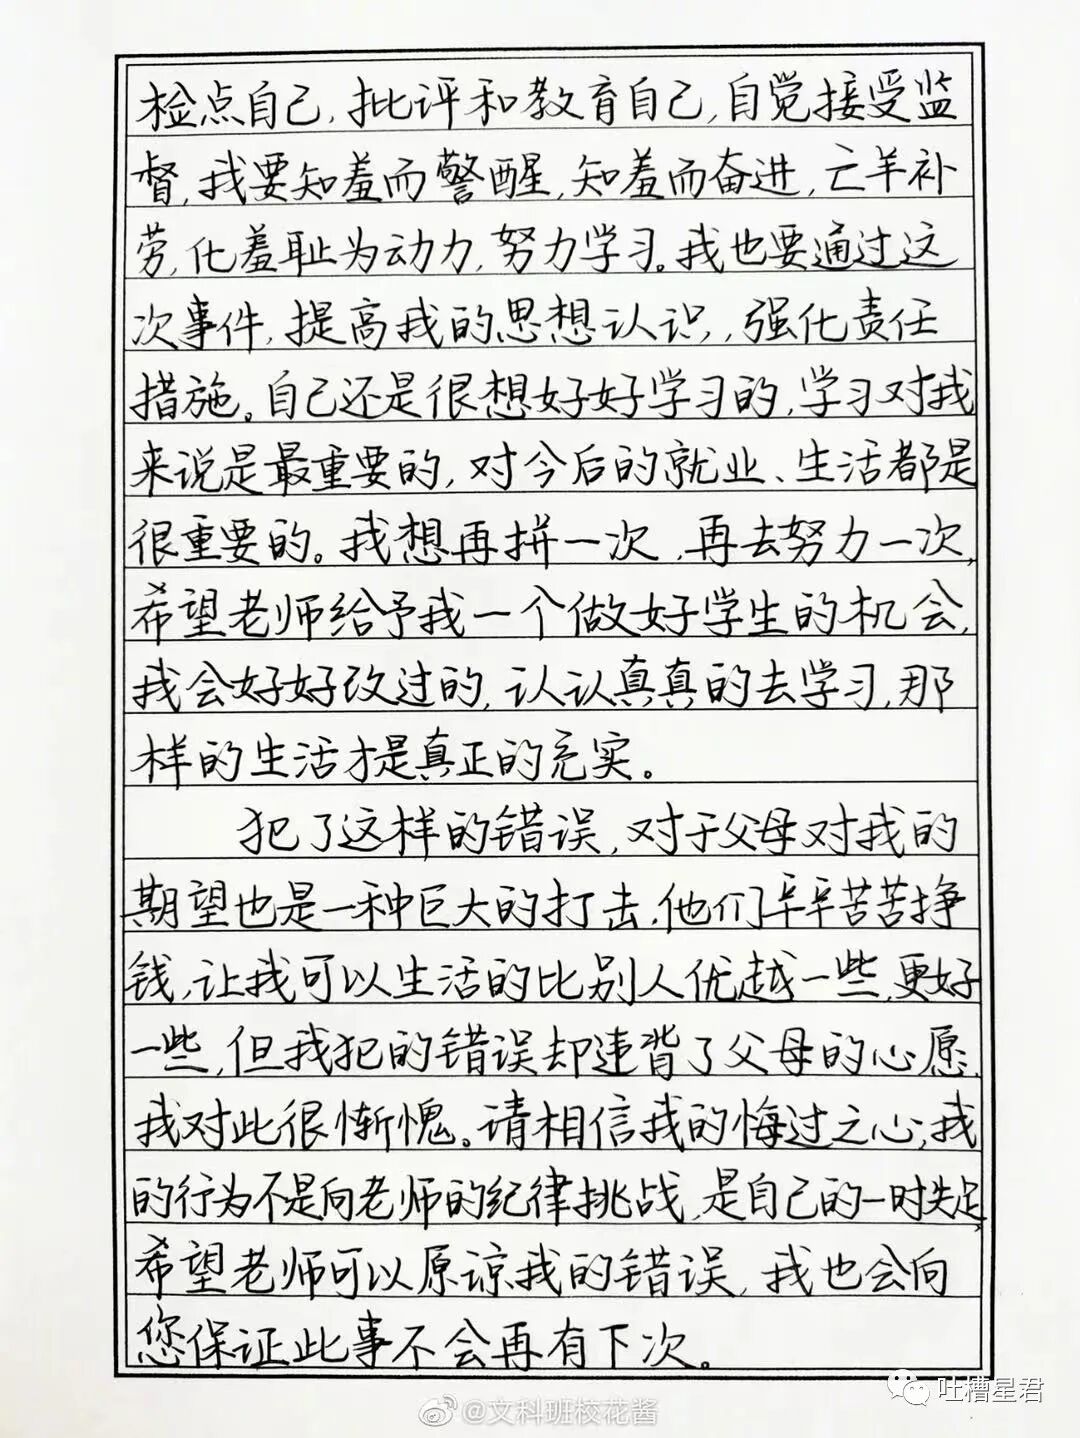 检点自己,批评和教育自己,自觉接受监
督,我要知羞而警醒,知羞而奋进,亡羊补
劳,化羞耻为动力,努力学习。我也要通过这
次事件,提高我的思想认识,,强化责任
措施。自己还是很想好好学习的,学习对我
来说是最重要的,对今后的就业、生活都是
很重要的。我想再拼一次,再去努力一次,
希望老师给予我一个做好学生的机会,
我会好好改过的,认认真真的去学习,那
样的生活才是真正的充实。
犯了这样的错误,对于父母对我的
期望也是一种巨大的打击,他们辛辛苦苦挣
钱,让我可以生活的比别人优越一些,更好
一些,但我犯的错误却违背了父母的心愿,
我对此很惭愧。请相信我的悔过之心;我
的行为不是向老师的纪律挑战,是自己的一时失足,
希望老师可以原谅我的错误,我也会向
您保证此事不会再有下次。
吐槽星君
@文科班校花酱